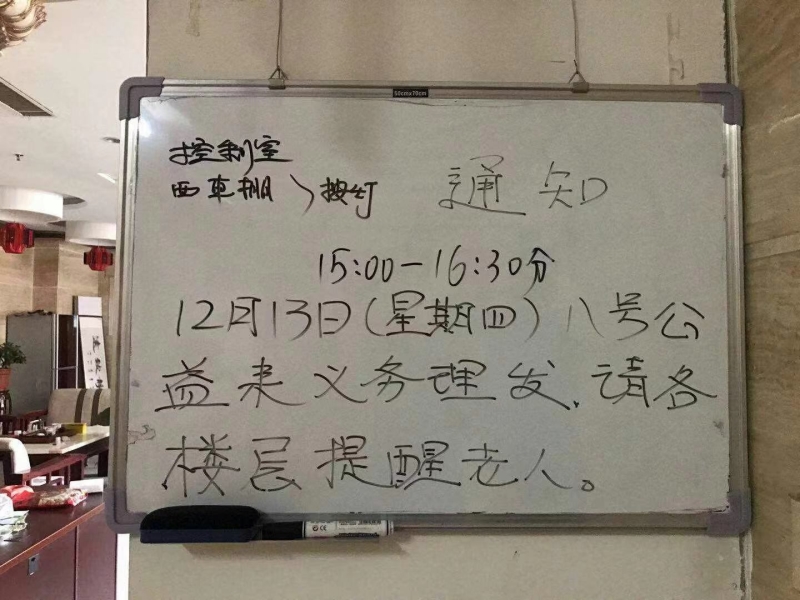 50cmx70cm
控制室
西车棚 〉按灯
通知
15:00-16:30分
12月13日(星期四)八号公
益来义务理发,请各
楼层提醒老人。